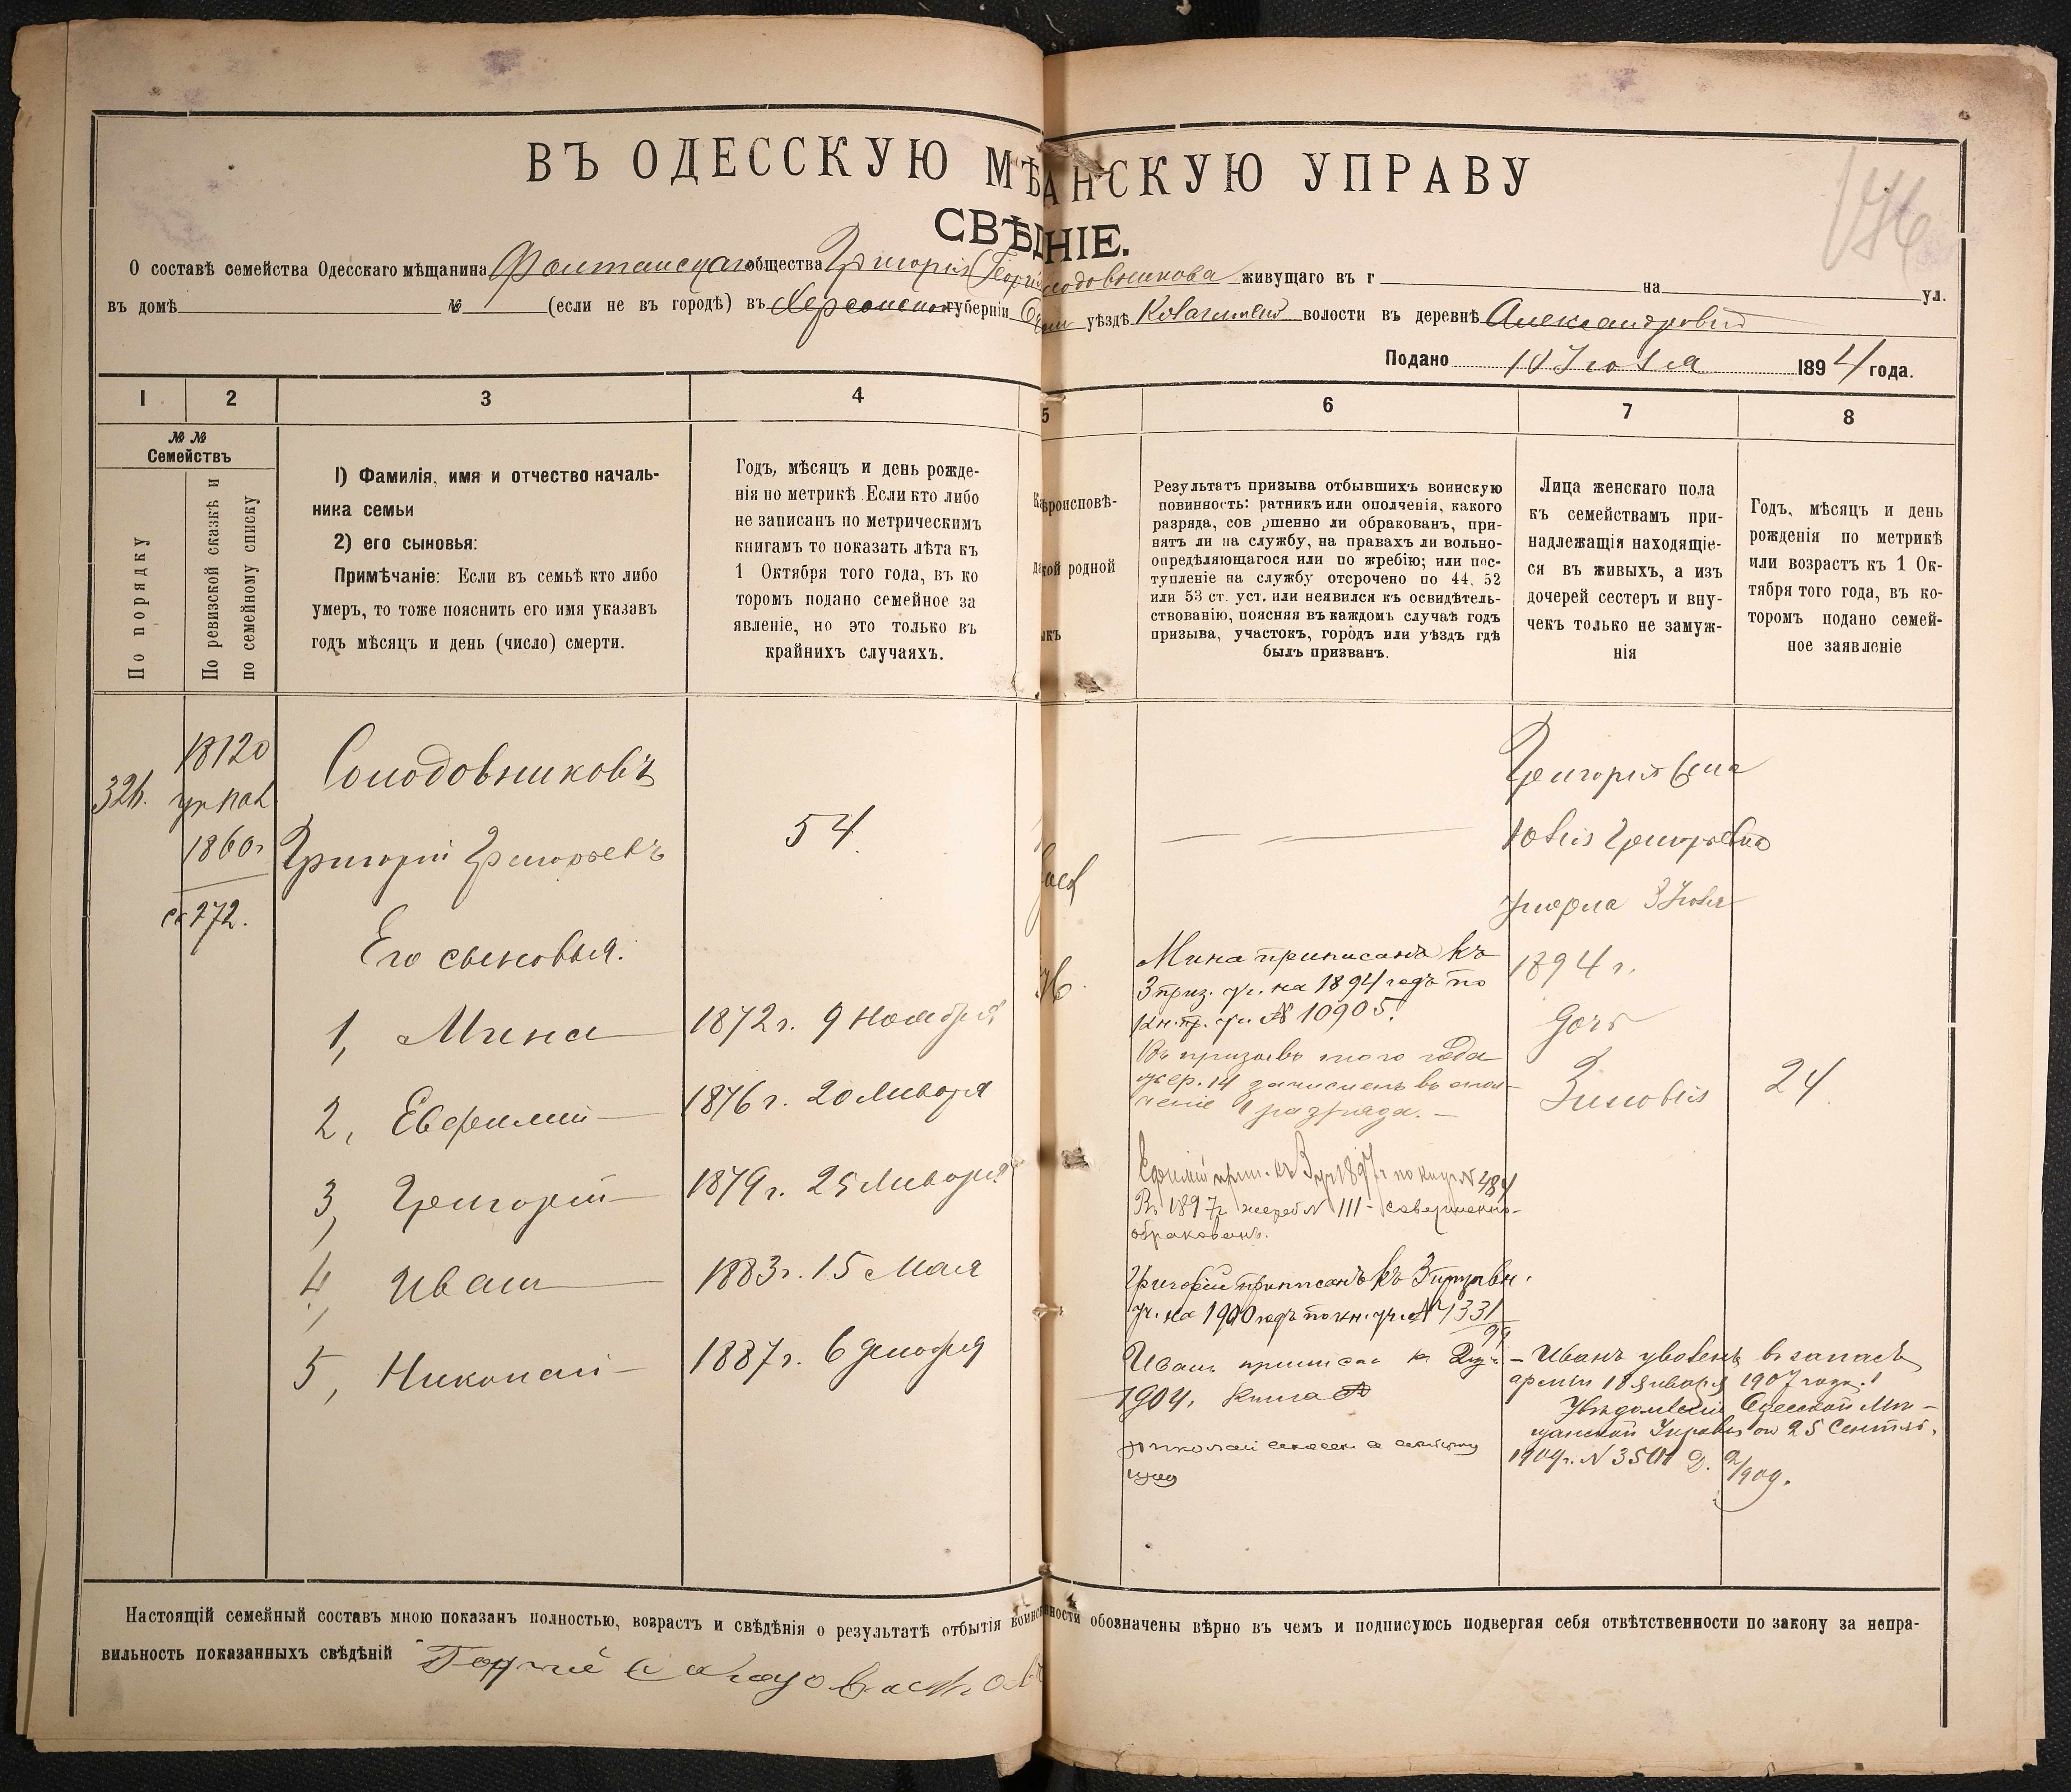 ВЪ ОДЕССКУЮ МѢ АНСКУЮ УПРАВУ
СВѢД НІЕ.
176
О составѣ семейства Одесскаго мѣщанина Фонтанскаго общества Григорія ( одовникова живущаго въ г на ул.
въ домѣ № (если не въ городѣ) въ Херсонской губерніи уѣздѣ волости въ деревнѣ Александровкѣ
Подано 10 Іюля 1894 года.
1 2 3 4 5 6 7 8
№ №
Семействъ
По порядку
По ревизской сказкѣ и
по семейному списку
1) Фамилія, имя и отчество началь-
ника семьи
2) его сыновья:
Примѣчаніе: Если въ семьѣ кто либо
умеръ, то тоже пояснить его имя указавъ
годъ мѣсяцъ и день (число) смерти.
Годъ, мѣсяцъ и день рожде-
нія по метрикѣ Если кто либо
не записанъ по метрическимъ
книгамъ то показать лѣта къ
1 Октября того года, въ ко
торомъ подано семейное за
явленіе, но это только въ
крайнихъ случаяхъ.
ѣроисповѣ-
кой родной
Результатъ призыва отбывшихъ воинскую
повинность: ратникъ или ополченія, какого
разряда, сов ршенно ли обракованъ, при-
нятъ ли на службу, на правахъ ли вольно-
опредѣляющагося или по жребію; или пос-
тупленіе на службу отсрочено по 44, 52
или 53 ст. уст. или неявился къ освидѣтель-
ствованію, поясняя въ каждомъ случаѣ годъ
призыва, участокъ, городъ или уѣздъ гдѣ
былъ призванъ.
Лица женскаго пола
къ семействамъ при-
надлежащія находящіе-
ся въ живыхъ, а изъ
дочерей сестеръ и вну-
чекъ только не замуж-
нія
Годъ, мѣсяцъ и день
рожденія по метрикѣ
или возрастъ къ 1 Ок-
тября того года, въ ко-
торомъ подано семей-
ное заявленіе
326.
18120
1860г
ст 272.
Солодовниковъ
Григорій Григорьевъ
54.
Его сыновья:
1, Мина 1872 г. 9 Ноября
2, Евфимій 1876 г. 20 Января
3, Григорій 1879 г. 25 Января
4, Иванъ 1883 г. 15 Мая
5, Николай 1887 г. 6 декабря
Мина приписанъ къ
3 приз. уч. на 1894 годъ по
кн. пр. уч. № 10905.
Въ призывъ того года
жер. 14 зачисленъ въ опол-
ченіе 1 разряда.
Ефимій прип. къ 3 уч 1897 г по кн уч № 484
Въ 1897г жереб № 111 - совершенно
обракованъ.
Григорій приписанъ къ 3 призывн.
уч. на 1900 годъ по кн. уч. № 1331
99
Иванъ приписан к 2 уч
1904, книга №
Николай
Григорія жена
Григорьевна
умерла 3 Іюля
1894 г.
дочь
Зиновія 24
- Иванъ уволенъ въ запасъ
арміи 18 Января 1907 года.
Увѣдомленіе Одесской Мѣ-
щанской Управы от 25 Сентяб.
1909 г. № 3501 Д. 2/909.
Настоящій семейный составъ мною показанъ полностью, возрастъ и свѣдѣнія о результатѣ отбытія воинс нности обозначены вѣрно въ чемъ и подписуюсь подвергая себя отвѣтственности по закону за непра-
вильность показанныхъ свѣдѣній